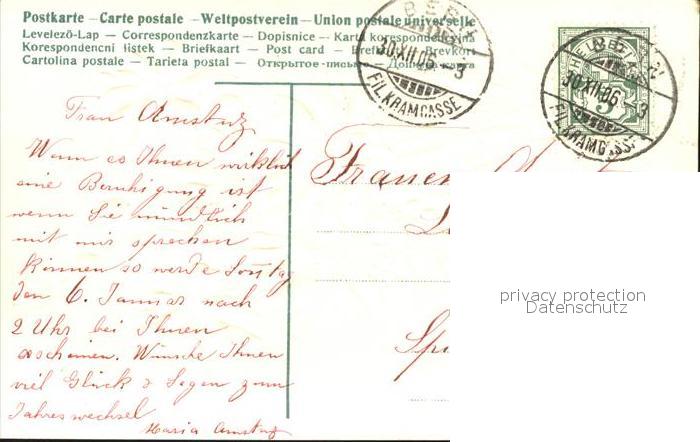 Postkarte – Carte postale – Weltpostverein – Union postale universelle
Levelező-Lap – Correspondenzkarte – Dopisnice – Karta korespondencyjna
Korespondencni listek – Briefkaart – Post card – Brefkort – Brevkort
Cartolina postale – Tarjeta postal – Открытое письмо – Дописна карта
BERN
30.XII.06. 3
FIL.KRAMGASSE
HELVETIA
5
BERN
30.XII.06. 3
FIL.KRAMGASSE
Frau Amstutz
Wenn es Ihnen wirklich
eine Beruhigung ist
wenn Sie mündlich
mit mir sprechen
können so werde Sonntag
den 6. Januar nach
2 Uhr bei Ihnen
erscheinen. Wünsche Ihnen
viel Glück & Segen zum
Jahreswechsel
Maria Amstutz
Frauen
privacy protection
Datenschutz